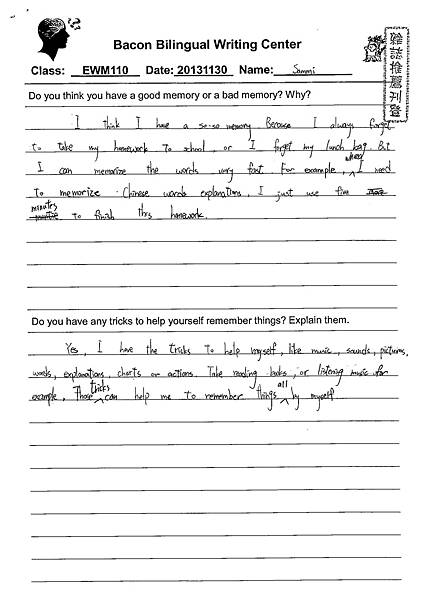 Bacon Bilingual Writing Center
Class: EWM110 Date: 20131130 Name: Sammi
雜誌推薦刊登
Do you think you have a good memory or a bad memory? Why?
I think I have a so-so memory. Because I always forget
to take my homework to school, or I forget my lunch bag. But
I can memorize the words very fast. For example, when I need
to memorize Chinese words explanations, I just use five
minutes to finish this homework.
Do you have any tricks to help yourself remember things? Explain them.
Yes, I have the tricks to help myself, like music, sounds, pictures,
words, explanations, charts or actions. Take reading books, or listening music for
example, Those tricks can help me to remember things all by myself.